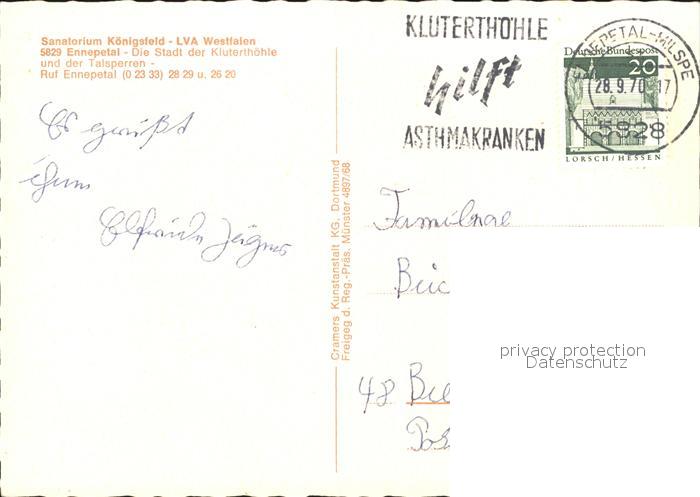 Sanatorium Königsfeld - LVA Westfalen
5829 Ennepetal - Die Stadt der Kluterthöhle
und der Talsperren -
Ruf Ennepetal (0 23 33) 28 29 u. 26 20
Es grüßt
Elfriede
Cramers Kunstanstalt KG., Dortmund
Freigeg d. Reg.-Präs. Münster 4897/68
KLUTERTHÖHLE
hilft
ASTHMAKRANKEN
ENNEPETAL-MILSPE
28.9.70 17
5828
Deutsche Bundespost
20
LORSCH/HESSEN
Familie
48
privacy protection
Datenschutz